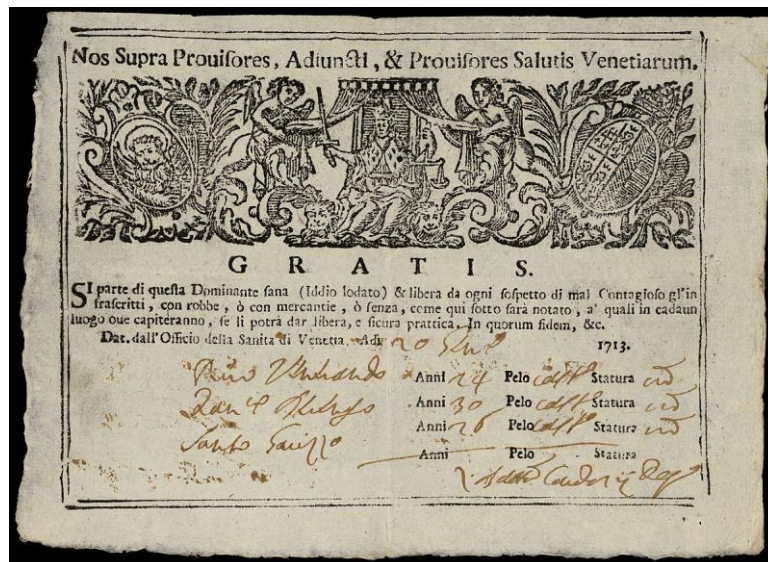 Nos Supra Prouiſores, Adiuncti, & Prouiſores Salutis Venetiarum.
GRATIS.
SI parte di queſta Dominante ſana (Iddio lodato) & libera da ogni ſoſpetto di mal Contagioſo gl'in
fraſcritti, con robbe, ò con mercantie, ò ſenza, come qui ſotto ſarà notato, a' quali in cadaun
luogo oue capiteranno, ſe li potrà dar libera, e ſicura prattica. In quorum fidem, &c.
Dat. dall'Officio della Sanita di Venetia. Adi 20 1713.
Anni 24 Pelo Statura
Anni 30 Pelo Statura
Anni 26 Pelo Statura
Santo
Anni Pelo Statura